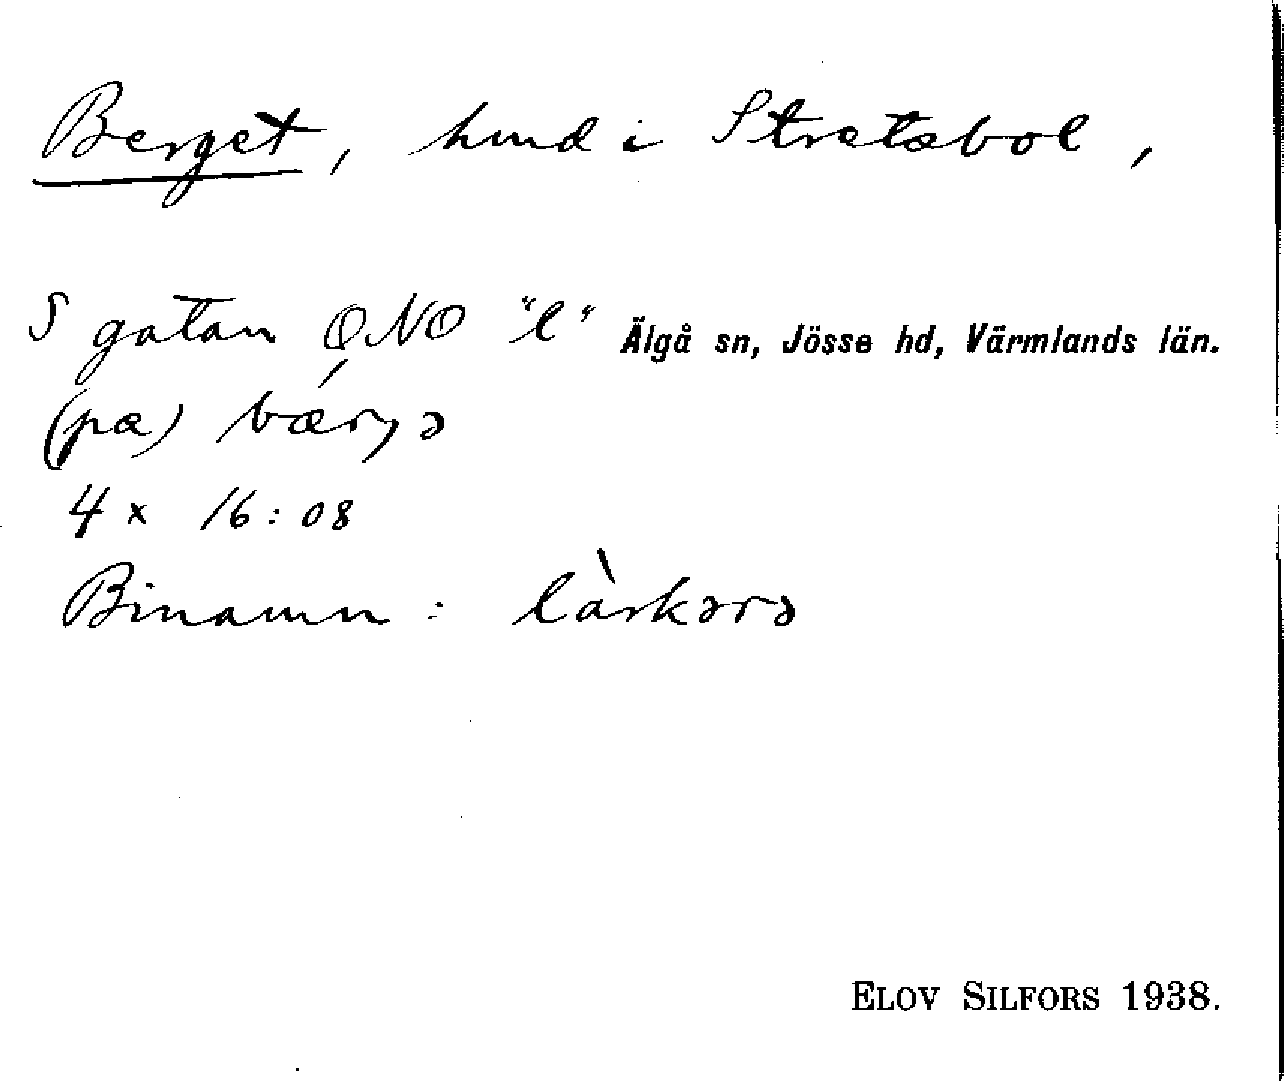 Berget, hmd i Stratabol,
S gatan ONO "l" Älgå sn, Jösse hd, Värmlands län.
(pa) bǽrjə
4 x 16:08
Binamn: làrkərə
ELOV SILFORS 1938.